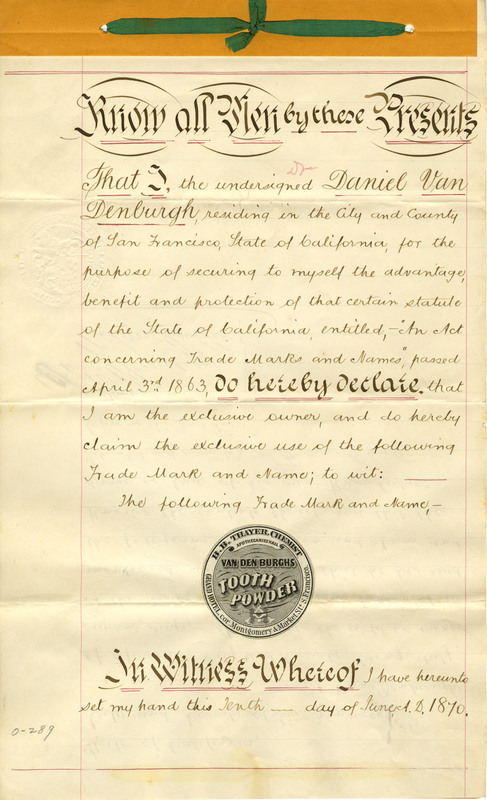 Know all Men by these Presents
That I, the undersigned Daniel Van
Denburgh, residing in the City and County
of San Francisco, State of California, for the
purpose of securing to myself the advantage,
benefit and protection of that certain statute
of the State of California, entitled,—"An Act
concerning Trade Marks and Names", passed
April 3rd 1863, do hereby declare, that
I am the exclusive owner, and do hereby
claim the exclusive use of the following
Trade Mark and Name; to wit:
The following Trade Mark and Name,—
H.H. THAYER, CHEMIST
APOTHECARIES HALL
VAN DEN BURGHS
TOOTH
POWDER
GRAND HOTEL, cor. Montgomery & Market Sts. S. Francisco
In Witness Whereof I have hereunto
set my hand this Tenth — day of June, A.D. 1870.
0-289